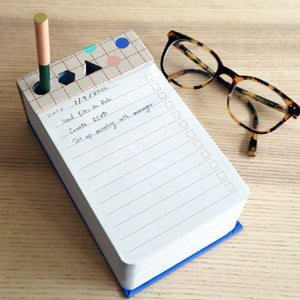 DATE
Send files to Bob
Create RSVP
Set up meeting with manager